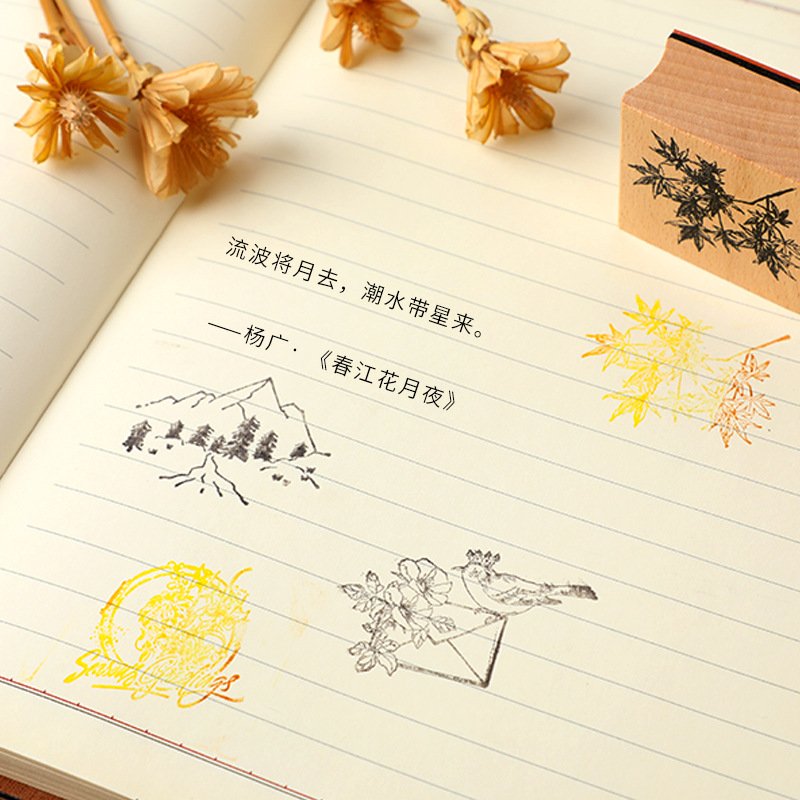 流波将月去，潮水带星来。
——杨广·《春江花月夜》
Season's Greetings